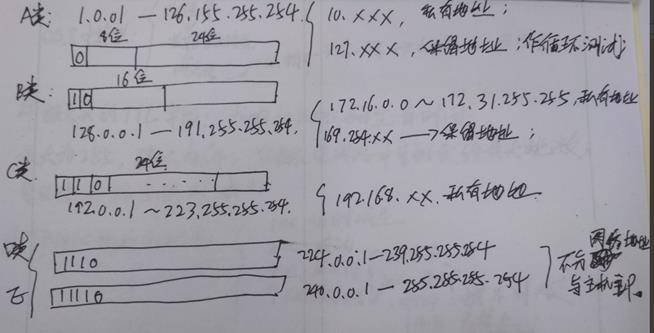 A类: 1.0.01 — 126.155.255.254
8位 24位
0
10.xxx, 私有地址;
127.xxx, 保留地址;作循环测试;
B类:
16位
10
128.0.0.1 — 191.255.255.254.
172.16.0.0 ~ 172.31.255.255,私有地址
169.254.xx → 保留地址;
C类:
24位
110 .....
192.0.0.1 ~ 223.255.255.254.
192.168.xx.私有地址
D类
1110
224.0.0.1 — 239.255.255.254
E
11110
240.0.0.1 — 255.255.255.254
不分网络地址
与主机